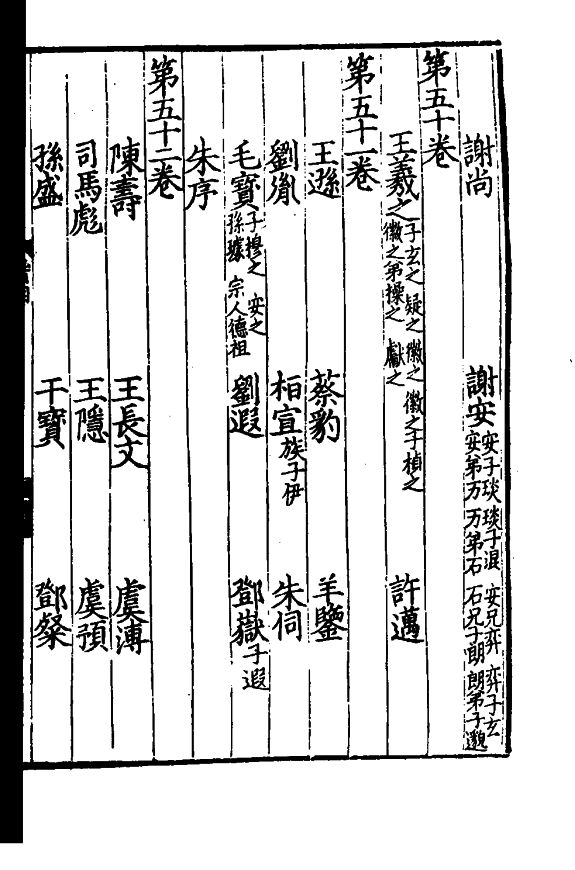 謝尚 謝安 安子琰 琰子混 安兄弈 弈子玄 安第万 万第石 石兄子朗 朗第子邈
第五十卷
王羲之 子玄之 疑之 徽之 徽之子楨之 徽之弟操之 獻之 許邁
第五十一卷
王遜 蔡豹 羊鑒
劉胤 桓宣族子伊 朱伺
毛寶 子穆之 安之 孫璩 宗人德祖 劉遐 鄧嶽子遐
朱序
第五十二卷
陳壽 王長文 虞溥
司馬彪 王隱 虞預
孫盛 干寶 鄧粲